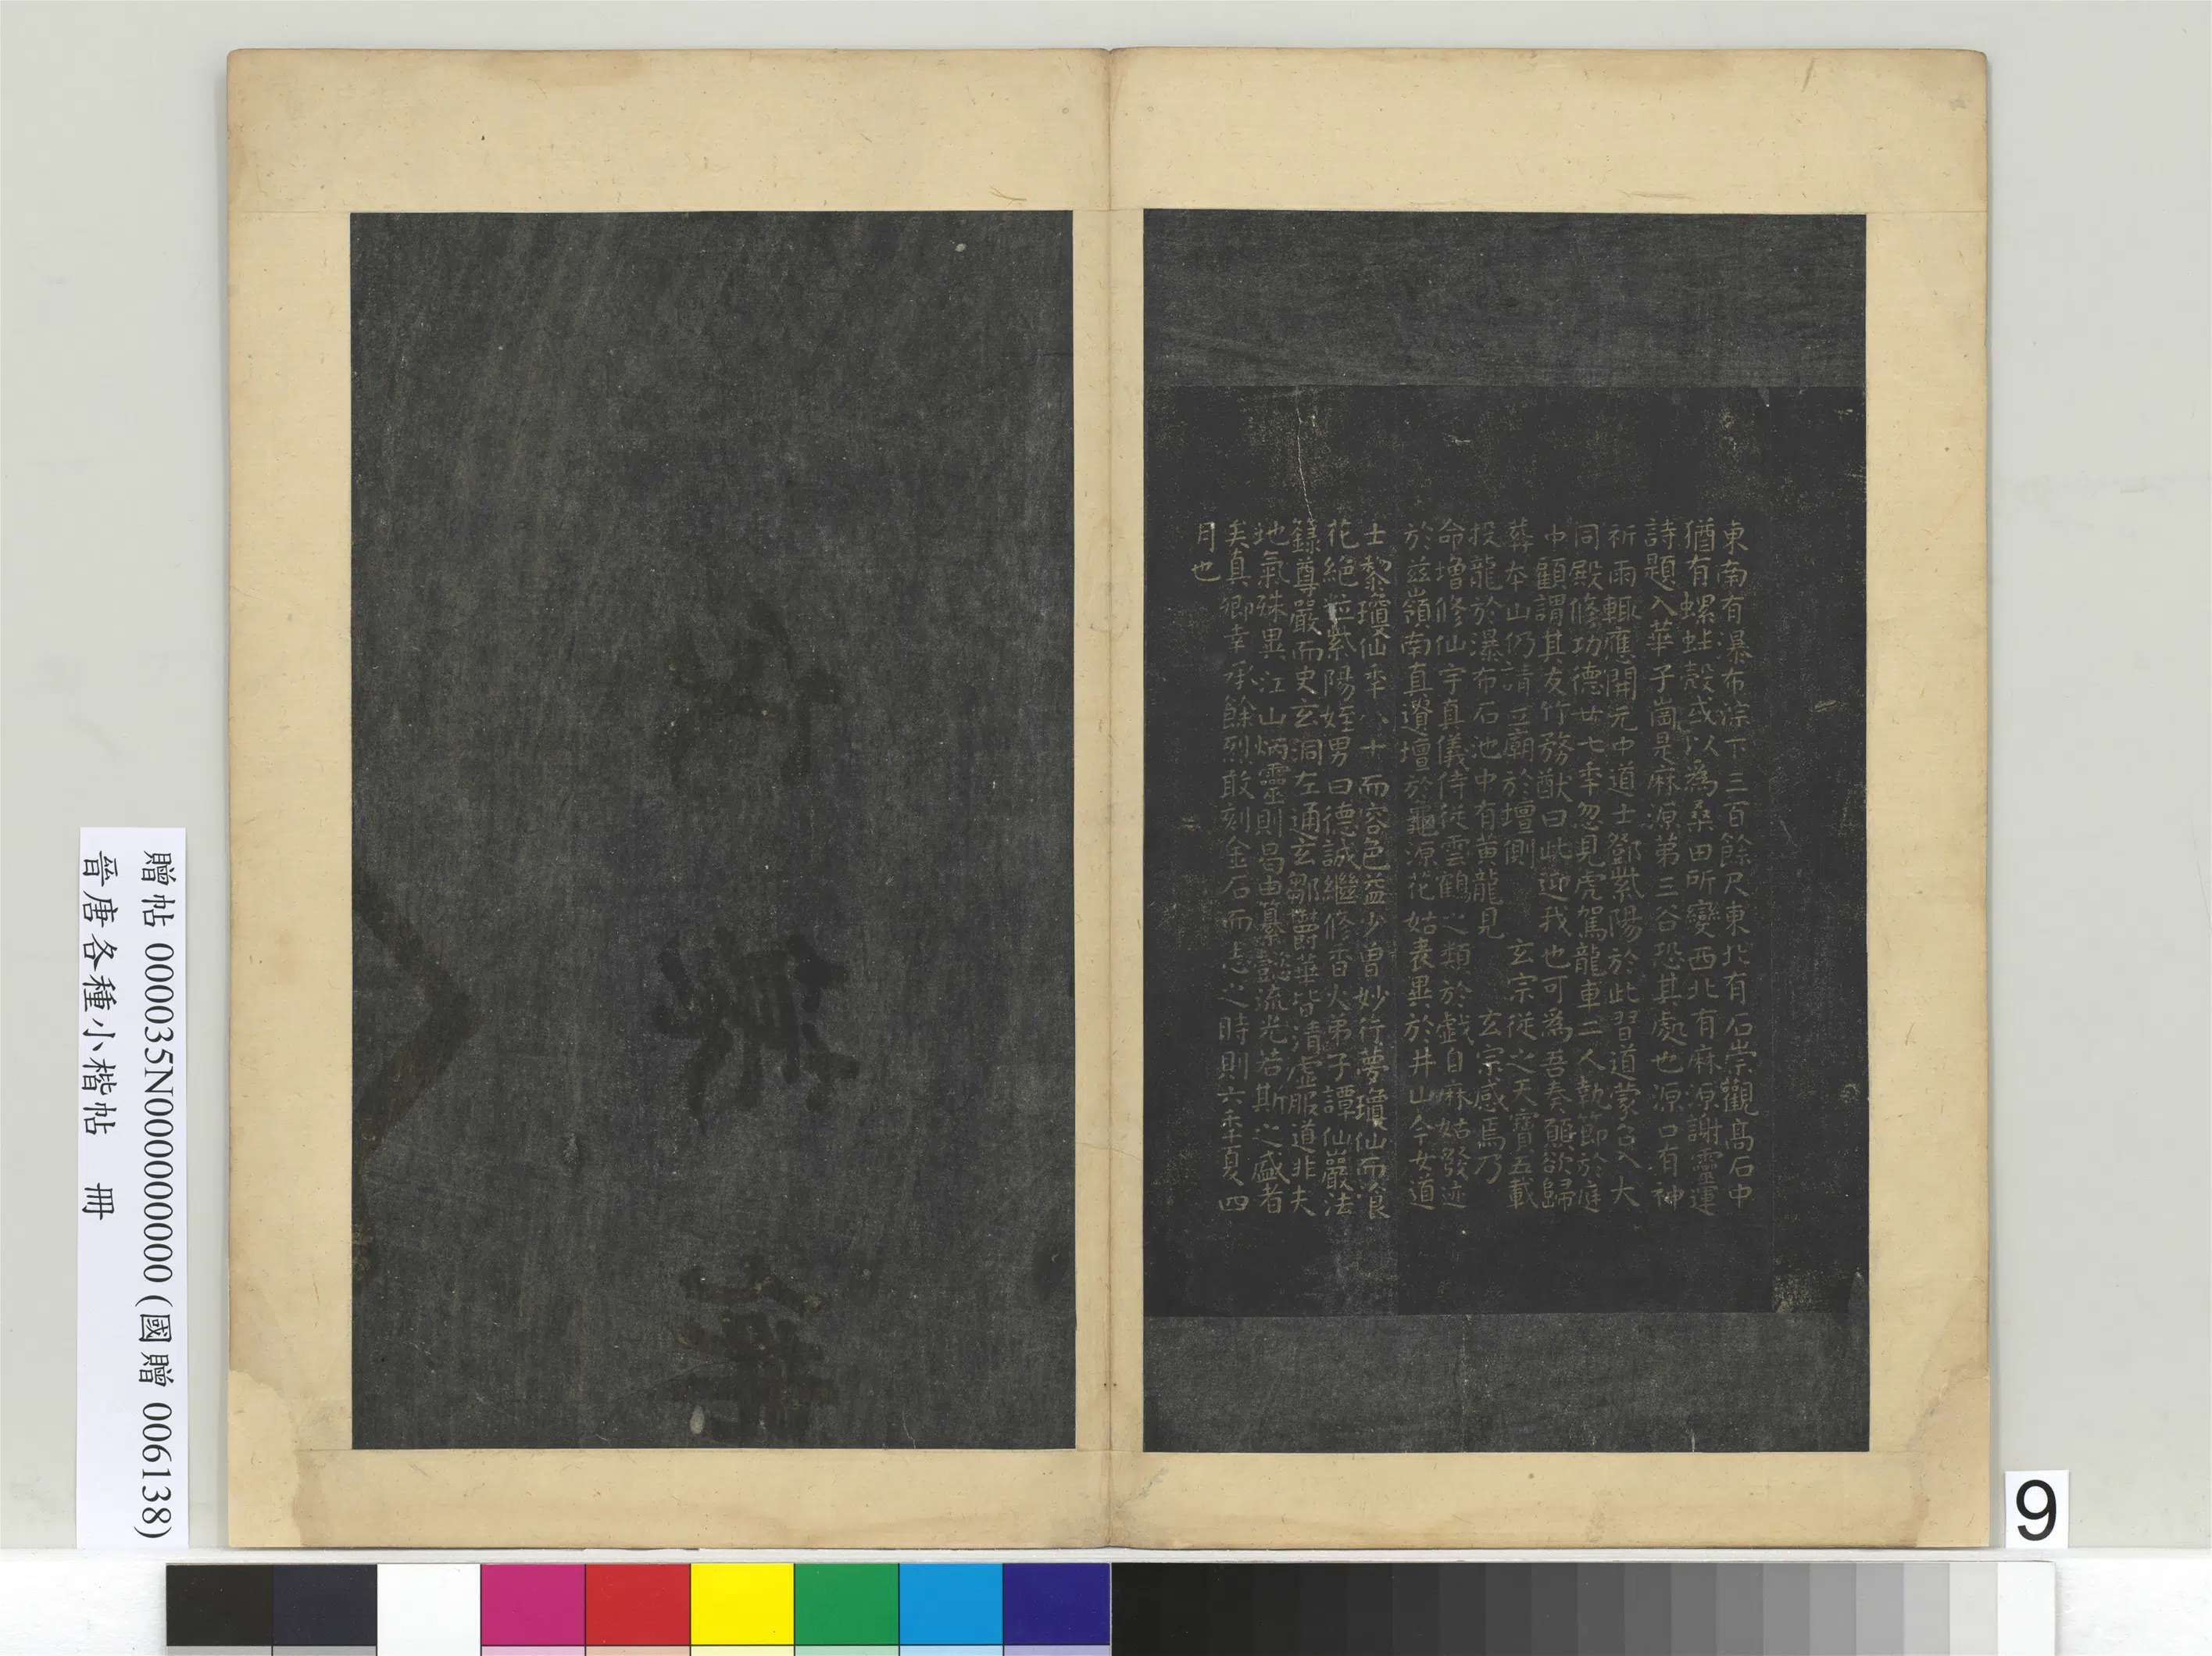 東南有瀑布淙下三百餘尺東北有石崇觀高石中
猶有螺蚌殼或以為桑田所變西北有麻源謝靈運
詩題入華子崗是麻源第三谷恐其處也源口有神
祈雨輒應開元中道士鄧紫陽於此習道蒙召入大
同殿修功德廿七年忽見虎駕龍車二人執節於庭
中顧謂其友竹務猷曰此迎我也可為吾奏願欲歸
葬本山仍請立廟於壇側 玄宗從之天寶五載
投龍於瀑布石池中有黃龍見 玄宗感焉乃
命增修仙宇真儀侍從雲鶴之類於戲自麻姑發迹
於茲嶺南真遺壇於龜源花姑表異於井山今女道
士黎瓊仙年八十而容色益少曾妙行夢瓊仙而飡
花絕粒紫陽姪男曰德誠繼修香火弟子譚仙巖法
籙尊嚴而史玄洞左通玄鄒鬱華皆清虛服道非夫
地氣殊異江山炳靈則曷由纂懿流光若斯之盛者
矣真卿幸承餘烈敢刻金石而志之時則六年夏四
月也
贈帖 000035N000000000 (國贈 006138)
晉唐各種小楷帖 冊
9